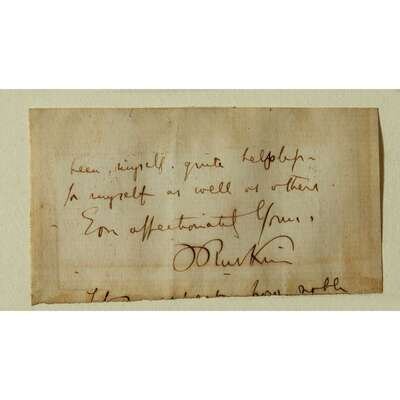 been, myself. quite helpless -
for myself as well as others.
Ever affectionately Yours,
JRuskin
how noble